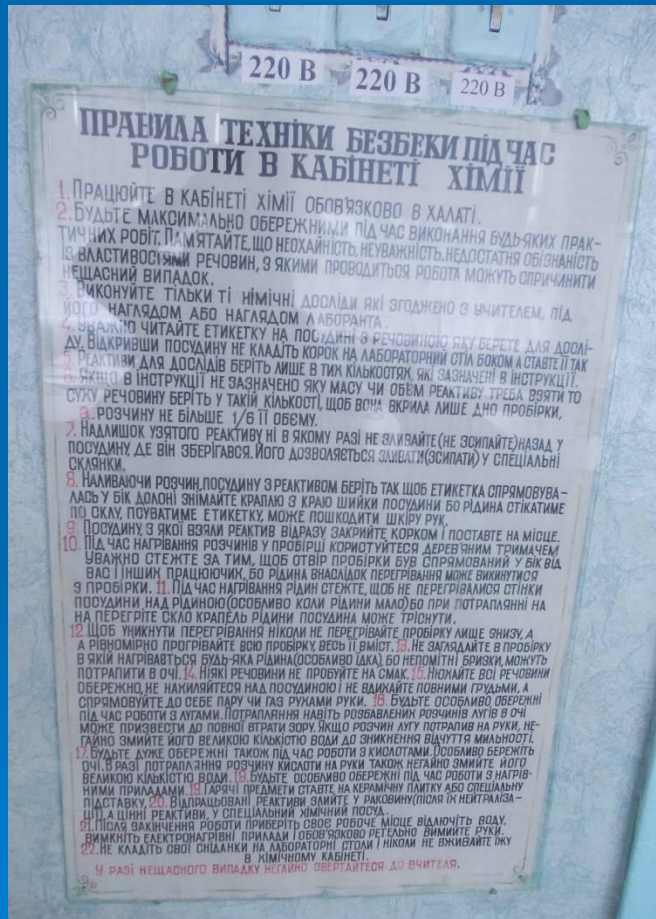 220 В 220 В 220 В
ПРАВИЛА ТЕХНІКИ БЕЗБЕКИ ПІД ЧАС
РОБОТИ В КАБІНЕТІ ХІМІЇ
1. ПРАЦЮЙТЕ В КАБІНЕТІ ХІМІЇ ОБОВ'ЯЗКОВО В ХАЛАТІ.
2. БУДЬТЕ МАКСИМАЛЬНО ОБЕРЕЖНИМИ ПІД ЧАС ВИКОНАННЯ БУДЬ-ЯКИХ ПРАК-
ТИЧНИХ РОБІТ. ПАМ'ЯТАЙТЕ, ЩО НЕОХАЙНІСТЬ, НЕУВАЖНІСТЬ, НЕДОСТАТНЯ ОБІЗНАНІСТЬ
ІЗ ВЛАСТИВОСТЯМИ РЕЧОВИН, З ЯКИМИ ПРОВОДИТЬСЯ РОБОТА МОЖУТЬ СПРИЧИНИТИ
НЕЩАСНИЙ ВИПАДОК.
3. ВИКОНУЙТЕ ТІЛЬКИ ТІ ХІМІЧНІ ДОСЛІДИ ЯКІ ЗГОДЖЕНО З УЧИТЕЛЕМ, ПІД
ЙОГО НАГЛЯДОМ АБО НАГЛЯДОМ ЛАБОРАНТА.
4. УВАЖНО ЧИТАЙТЕ ЕТИКЕТКУ НА ПОСУДИНІ З РЕЧОВИНОЮ ЯКУ БЕРЕТЕ ДЛЯ ДОСЛІ-
ДУ. ВІДКРИВШИ ПОСУДИНУ НЕ КЛАДІТЬ КОРОК НА ЛАБОРАТОРНИЙ СТІЛ БОКОМ А СТАВТЕ ЇЇ ТАК
5. РЕАКТИВИ ДЛЯ ДОСЛІДІВ БЕРІТЬ ЛИШЕ В ТИХ КІЛЬКОСТЯХ, ЯКІ ЗАЗНАЧЕНІ В ІНСТРУКЦІЇ.
6. ЯКЩО В ІНСТРУКЦІЇ НЕ ЗАЗНАЧЕНО ЯКУ МАСУ ЧИ ОБ'ЄМ РЕАКТИВУ ТРЕБА ВЗЯТИ ТО
СУХУ РЕЧОВИНУ БЕРІТЬ У ТАКІЙ КІЛЬКОСТІ, ЩОБ ВОНА ВКРИЛА ЛИШЕ ДНО ПРОБІРКИ,
а. РОЗЧИНУ НЕ БІЛЬШЕ 1/6 ЇЇ ОБЄМУ.
7. НАДЛИШОК УЗЯТОГО РЕАКТИВУ НІ В ЯКОМУ РАЗІ НЕ ЗЛИВАЙТЕ (НЕ ЗСИПАЙТЕ) НАЗАД У
ПОСУДИНУ, ДЕ ВІН ЗБЕРІГАВСЯ. ЙОГО ДОЗВОЛЯЄТЬСЯ ЗЛИВАТИ (ЗСИПАТИ) У СПЕЦІАЛЬНІ
СКЛЯНКИ.
8. НАЛИВАЮЧИ РОЗЧИН, ПОСУДИНУ З РЕАКТИВОМ БЕРІТЬ ТАК ЩОБ ЕТИКЕТКА СПРЯМОВУВА-
ЛАСЬ У БІК ДОЛОНІ ЗНІМАЙТЕ КРАПЛЮ З КРАЮ ШИЙКИ ПОСУДИНИ БО РІДИНА СТІКАТИМЕ
ПО СКЛУ, ПСУВАТИМЕ ЕТИКЕТКУ, МОЖЕ ПОШКОДИТИ ШКІРУ РУК.
9. ПОСУДИНУ, З ЯКОЇ ВЗЯЛИ РЕАКТИВ ВІДРАЗУ ЗАКРИЙТЕ КОРКОМ І ПОСТАВТЕ НА МІСЦЕ.
10. ПІД ЧАС НАГРІВАННЯ РОЗЧИНІВ У ПРОБІРЦІ КОРИСТУЙТЕСЯ ДЕРЕВ'ЯНИМ ТРИМАЧЕМ
УВАЖНО СТЕЖТЕ ЗА ТИМ, ЩОБ ОТВІР ПРОБІРКИ БУВ СПРЯМОВАНИЙ У БІК ВІД
ВАС І ІНШИХ ПРАЦЮЮЧИХ, БО РІДИНА ВНАСЛІДОК ПЕРЕГРІВАННЯ МОЖЕ ВИКИНУТИСЯ
З ПРОБІРКИ. 11. ПІД ЧАС НАГРІВАННЯ РІДИН СТЕЖТЕ, ЩОБ НЕ ПЕРЕГРІВАЛИСЯ СТІНКИ
ПОСУДИНИ НАД РІДИНОЮ (ОСОБЛИВО КОЛИ РІДИНИ МАЛО) БО ПРИ ПОТРАПЛЯННІ НА
НА ПЕРЕГРІТЕ СКЛО КРАПЕЛЬ РІДИНИ ПОСУДИНА МОЖЕ ТРІСНУТИ.
12. ЩОБ УНИКНУТИ ПЕРЕГРІВАННЯ НІКОЛИ НЕ ПЕРЕГРІВАЙТЕ ПРОБІРКУ ЛИШЕ ЗНИЗУ, А
А РІВНОМІРНО ПРОГРІВАЙТЕ ВСЮ ПРОБІРКУ, ВЕСЬ ЇЇ ВМІСТ. 13. НЕ ЗАГЛЯДАЙТЕ В ПРОБІРКУ
В ЯКІЙ НАГРІВАЄТЬСЯ БУДЬ-ЯКА РІДИНА (ОСОБЛИВО ЇДКА), БО НЕПОМІТНІ БРИЗКИ, МОЖУТЬ
ПОТРАПИТИ В ОЧІ. 14. НІЯКІ РЕЧОВИНИ НЕ ПРОБУЙТЕ НА СМАК. 15. НЮХАЙТЕ ВСІ РЕЧОВИНИ
ОБЕРЕЖНО, НЕ НАХИЛЯЙТЕСЯ НАД ПОСУДИНОЮ І НЕ ВДИХАЙТЕ ПОВНИМИ ГРУДЬМИ, А
СПРЯМОВУЙТЕ ДО СЕБЕ ПАРУ ЧИ ГАЗ РУХАМИ РУКИ. 16. БУДЬТЕ ОСОБЛИВО ОБЕРЕЖНІ
ПІД ЧАС РОБОТИ З ЛУГАМИ. ПОТРАПЛЯННЯ НАВІТЬ РОЗБАВЛЕНИХ РОЗЧИНІВ ЛУГІВ В ОЧІ
МОЖЕ ПРИЗВЕСТИ ДО ПОВНІЇ ВТРАТИ ЗОРУ. ЯКЩО РОЗЧИН ЛУГУ ПОТРАПИВ НА РУКИ, НЕ-
ГАЙНО ЗМИЙТЕ ЙОГО ВЕЛИКОЮ КІЛЬКІСТЮ ВОДИ ДО ЗНИКНЕННЯ ВІДЧУТТЯ МИЛЬНОСТІ.
17. БУДЬТЕ ДУЖЕ ОБЕРЕЖНІ ТАКОЖ ПІД ЧАС РОБОТИ З КИСЛОТАМИ. ОСОБЛИВО БЕРЕЖІТЬ
ОЧІ. В РАЗІ ПОТРАПЛЯННЯ РОЗЧИНУ КИСЛОТИ НА РУКИ ТАКОЖ НЕГАЙНО ЗМИЙТЕ ЙОГО
ВЕЛИКОЮ КІЛЬКІСТЮ ВОДИ. 18. БУДЬТЕ ОСОБЛИВО ОБЕРЕЖНІ ПІД ЧАС РОБОТИ З НАГРІВ-
НИМИ ПРИЛАДАМИ. 19 ГАРЯЧІ ПРЕДМЕТИ СТАВТЕ НА КЕРАМІЧНУ ПЛИТКУ АБО СПЕЦІАЛЬНУ
ПІДСТАВКУ. 20. ВІДПРАЦЬОВАНІ РЕАКТИВИ ЗЛИЙТЕ У РАКОВИНУ (ПІСЛЯ ЇХ НЕЙТРАЛІЗА-
ЦІЇ), А ЦІННІ РЕАКТИВИ, У СПЕЦІАЛЬНИЙ ХІМІЧНИЙ ПОСУД.
21. ПІСЛЯ ЗАКІНЧЕННЯ РОБОТИ ПРИБЕРІТЬ СВОЄ РОБОЧЕ МІСЦЕ ВІДКЛЮЧІТЬ ВОДУ,
ВИМКНІТЬ ЕЛЕКТРОНАГРІВНІ ПРИЛАДИ І ОБОВ'ЯЗКОВО РЕТЕЛЬНО ВИМИЙТЕ РУКИ.
22. НЕ КЛАДІТЬ СВОЇ СНІДАНКИ НА ЛАБОРАТОРНІ СТОЛИ І НІКОЛИ НЕ ВЖИВАЙТЕ ЇЖУ
В ХІМІЧНОМУ КАБІНЕТІ.
У РАЗІ НЕЩАСНОГО ВИПАДКУ НЕГАЙНО ЗВЕРТАЙТЕСЯ ДО ВЧИТЕЛЯ.